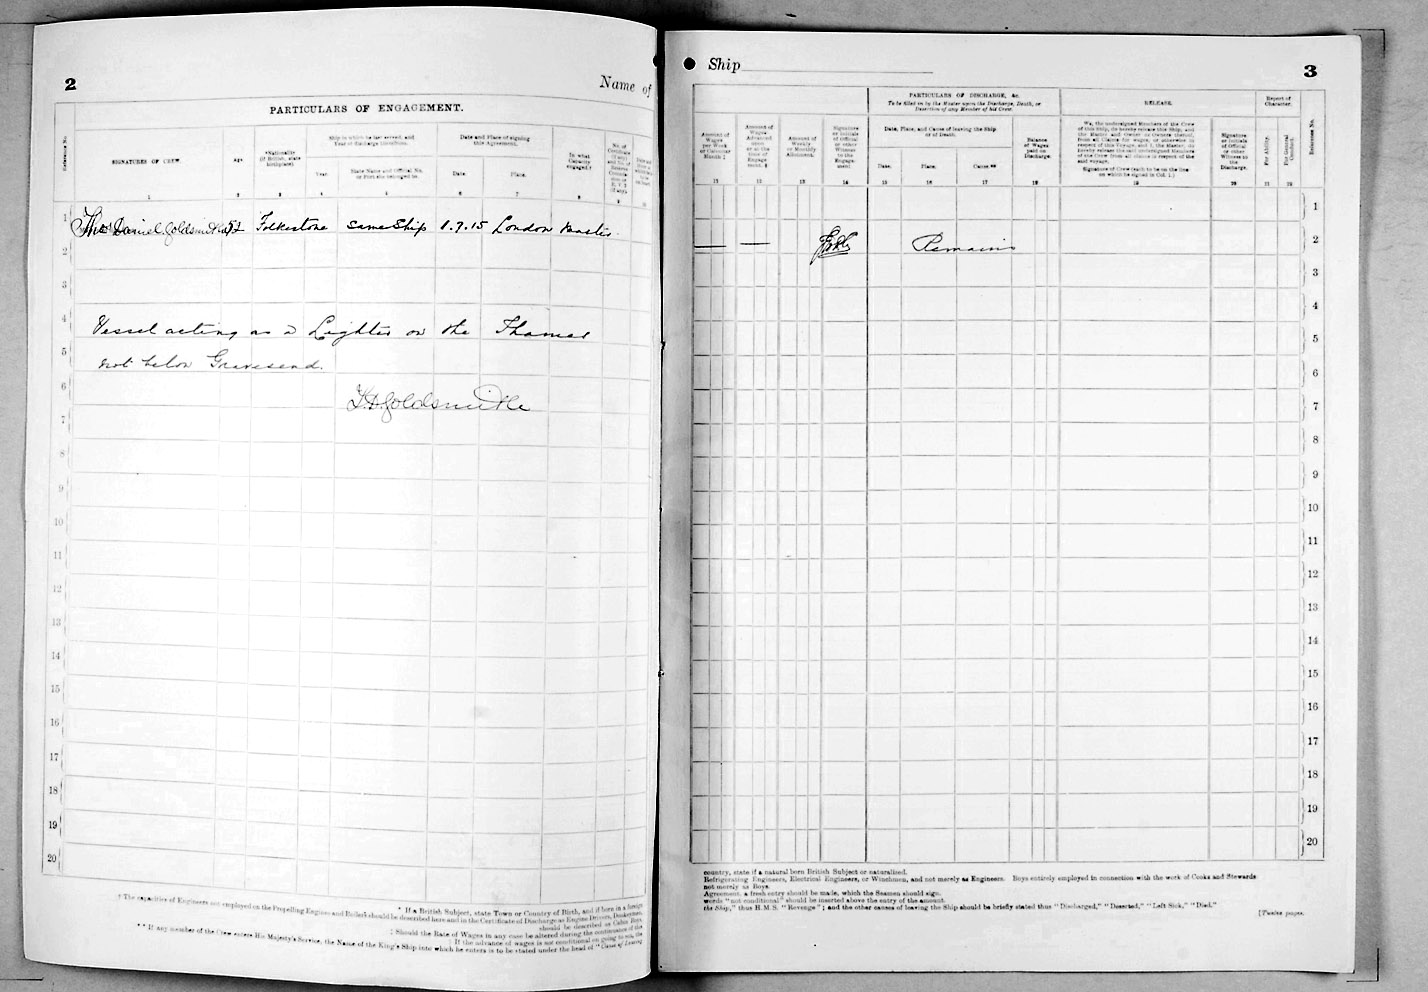 2
Name of
PARTICULARS OF ENGAGEMENT.
Reference No.
SIGNATURES OF CREW.
Age
*Nationality (if British, state birthplace).
Ship in which he last served, and Year of discharge therefrom.
Year.
State Name and Official No. or Port she belonged to.
Date and Place of signing this Agreement.
Date.
Place.
In what Capacity engaged.†
1 2 3 4 4 6 7 8 9 10
1
Thos Daniel Goldsmith 52 Folkestone Same Ship 1.7.15 London Master
2
3
4
Vessel acting as a Lighter on the Thames
5
not below Gravesend.
6
T.D. Goldsmith
7
8
9
10
11
12
13
14
15
16
17
18
19
20
* If a British Subject, state Town or Country of Birth, and if born in a foreign
† The capacities of Engineers not employed on the Propelling Engines and Boilers should be described here and in the Certificate of Discharge as Engine Drivers, Donkeymen,
should be described as Cabin Boys,
‡ Should the Rate of Wages in any case be altered during the continuance of this
‖ If the advance of wages is not conditional on going to sea, the
** If any member of the Crew enters His Majesty's Service, the Name of the King's Ship into which he enters is to be stated under the head of "Cause of Leaving
Ship
3
Amount of Wages per Week or Calendar Month ‡
Amount of Wages Advanced upon or at the time of Engagement. ‖
Amount of Weekly or Monthly Allotment.
Signature or Initials of Official or other Witness to the Engagement
PARTICULARS OF DISCHARGE, &c.
To be filled in by the Master upon the Discharge, Death, or Desertion of any Member of his Crew.
Date, Place, and Cause of leaving the Ship or of Death.
Date.
Place.
Cause.**
Balance of Wages paid on Discharge.
RELEASE.
We, the undersigned Members of the Crew of this Ship, do hereby release this Ship, and the Master and Owner or Owners thereof, from all Claims for wages, or otherwise in respect of this Voyage, and I, the Master, do hereby release the said undersigned Members of the Crew from all claims in respect of the said voyage.
Signature of Crew (each to be on the line on which he signed in Col. 1.)
Signature or Initials of Official or other Witness to the Discharge.
Report of Character.
For Ability.
For General Conduct.
Reference No.
11 12 13 14 15 16 17 18 19 20 21 22
1
— — Remains 2
3
4
5
6
7
8
9
10
11
12
13
14
15
16
17
18
19
20
country, state if a natural born British Subject or naturalised.
Refrigerating Engineers, Electrical Engineers, or Winchmen, and not merely as Engineers. Boys entirely employed in connection with the work of Cooks and Stewards
not merely as Boys.
Agreement, a fresh entry should be made, which the Seamen should sign.
words "not conditional" should be inserted above the entry of the amount.
the Ship," thus H.M.S. "Revenge"; and the other causes of leaving the Ship should be briefly stated thus "Discharged," "Deserted," "Left Sick," "Died."
[Twelve pages.